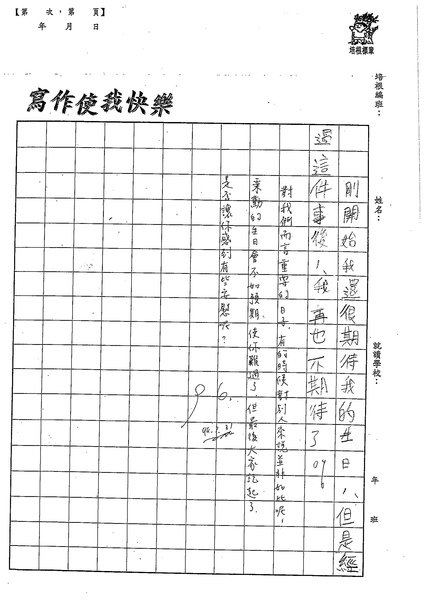 【第 次,第 頁】
年 月 日
培根標章
寫作使我快樂
培根編班：
姓名：
就讀學校：
年 班
剛開始我還很期待我的生日，但是經
過這件事後，我再也不期待了
對我們而言重要的日子，有的時候對別人來說並非如此呢，
采勳的生日會不如預期，使你難過了，但最後大家記起了，
是否讓你感到有些安慰呢？
96.